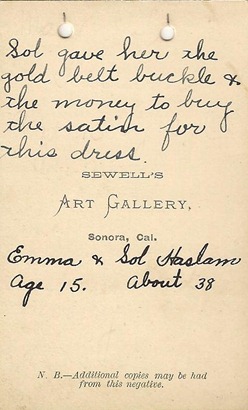 Sol gave her the
gold belt buckle &
the money to buy
the satin for
this dress.
SEWELL'S
ART GALLERY,
Sonora, Cal.
Emma & Sol Haslam
Age 15. About 38
N. B.—Additional copies may be had
from this negative.